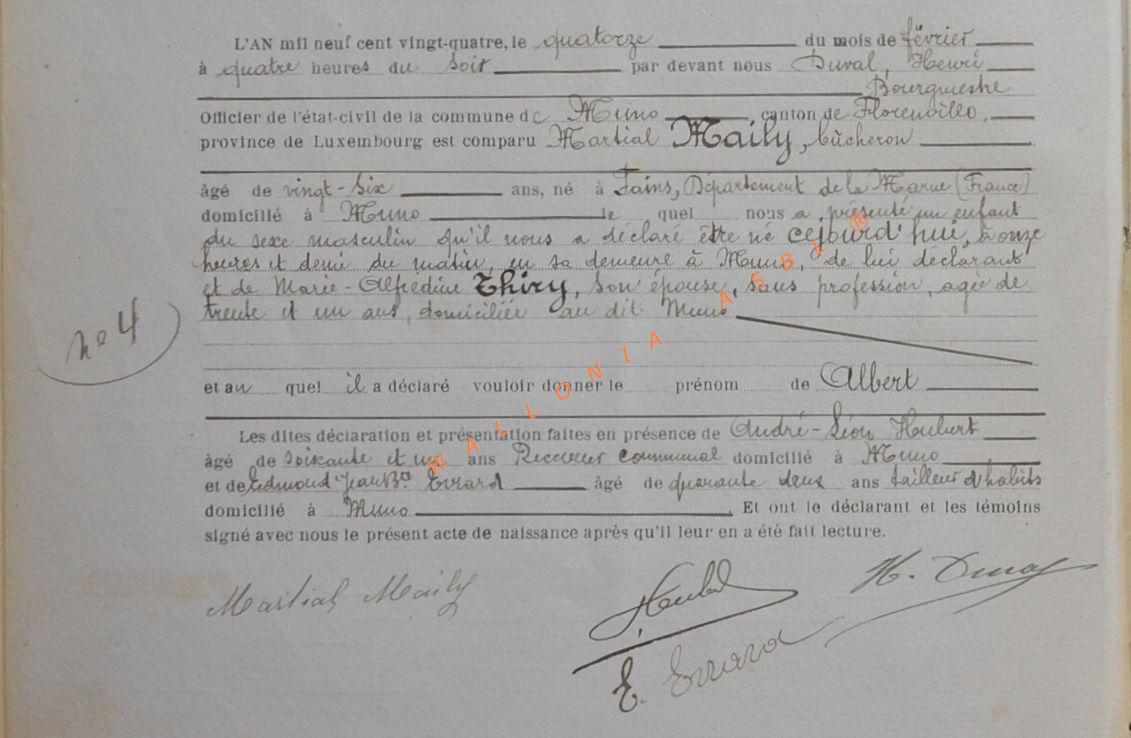 L'AN mil neuf cent vingt-quatre, le quatorze du mois de février
à quatre heures du soir par devant nous Duval, Henri
Bourgmestre
Officier de l'état-civil de la commune de Muno, canton de Florenville,
province de Luxembourg est comparu Martial Maily, bûcheron
âgé de vingt-six ans, né à Fains, Département de la Marne (France)
domicilié à Muno le quel nous a présenté un enfant
du sexe masculin qu'il nous a déclaré être né cejourd'hui, à onze
heures et demi du matin, en sa demeure à Muno, de lui déclarant
et de Marie-Alfredine Thiry, son épouse, sans profession, agée de
trente et un ans, domiciliée au dit Muno
no 4
et au quel il a déclaré vouloir donner le prénom de Albert
Les dites déclaration et présentation faites en présence de André-Léon Hubert
âgé de soixante et un ans Receveur communal domicilié à Muno
et de Edmond Jean Bte Evrard âgé de quarante deux ans tailleur d'habits
domicilié à Muno. Et ont le déclarant et les témoins
signé avec nous le présent acte de naissance après qu'il leur en a été fait lecture.
WALLONIA ASBL ®
Martial Maily
Hubert
H. Duval
E. Evrard